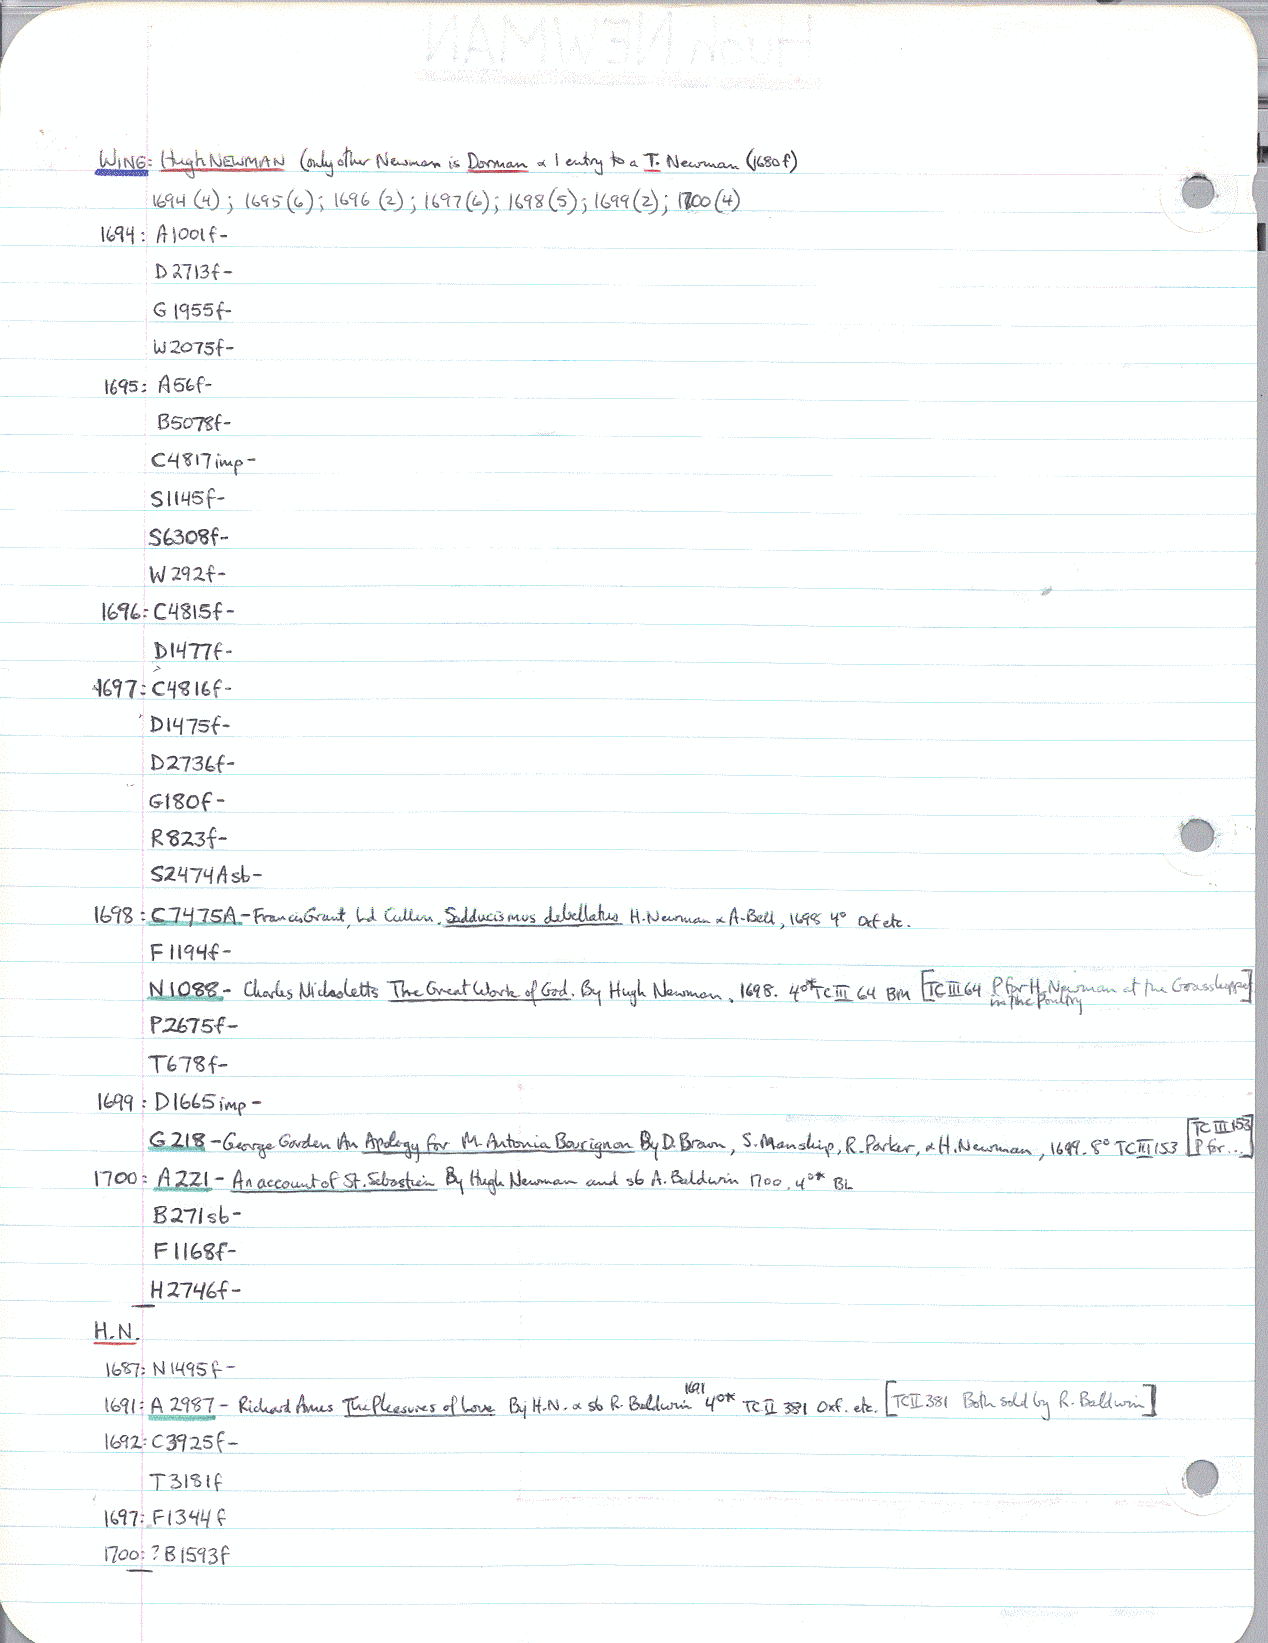 WING: Hugh NEWMAN (only other Newman is Dorman & 1 entry to a T. Newman (1680f)
1694 (4); 1695 (6); 1696 (2); 1697 (6); 1698 (5); 1699 (2); 1700 (4)
1694: A1001f-
D2713f-
G1955f-
W2075f-
1695: A56f-
B5078f-
C4817imp-
S1145f-
S6308f-
W292f-
1696: C4815f-
D1477f-
1697: C4816f-
D1475f-
D2736f-
G180f-
R823f-
S2474Asb-
1698: C7475A- Francis Grant, Ld Cullen. Sadducismus debellatus H. Newman & A. Bell, 1698 4° Oxf etc.
F1194f-
N1088- Charles Nicholetts The Great Work of God. By Hugh Newman, 1698. 4°* TC III 64 BM [TC III 64 P for H. Newman at the Grasshopper
in the Poultry]
P2675f-
T678f-
1699: D1665imp-
G218- George Garden An Apology for M. Antonia Bourignon By D. Brown, S. Manship, R. Parker, & H. Newman, 1699. 8° TC III 153 [TC III 153
P for...]
1700: A221- An account of St. Sebastien By Hugh Newman and sb A. Baldwin 1700. 4°* BL
B271sb-
F1168f-
H2746f-
H.N.
1687: N1495f-
1691: A2987- Richard Ames The Pleasures of Love By H.N. & sb R. Baldwin 1691 4°* TC II 381 Oxf. etc. [TC II 381 Both sold by R. Baldwin]
1692: C3925f-
T3181f
1697: F1344f
1700: ?B1593f